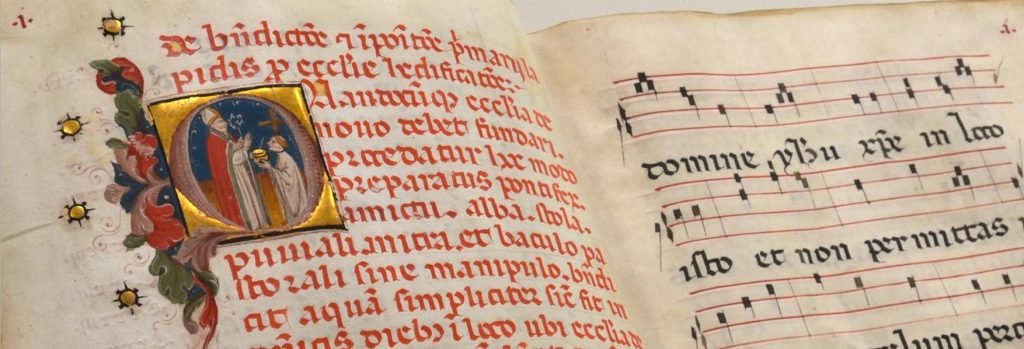 ·1·
de bñdictõe et ĩpoĩtõe p̃marii la
pidis p̱ ecclie ledificatõe.
Quandocũqꝫ ecclia de
nouo debet fundari.
procedatur hoc moto
preparatus pontifex
amictu. alba. stola.
pluuiali. mitra. et baculo pa
storali sine manipulo. bñdi
cit aquã simpliciter sič fit in
dieb ĩ loco ubi ecclia
·1·
domine yhu xp̃e in loco
isto et non permittas